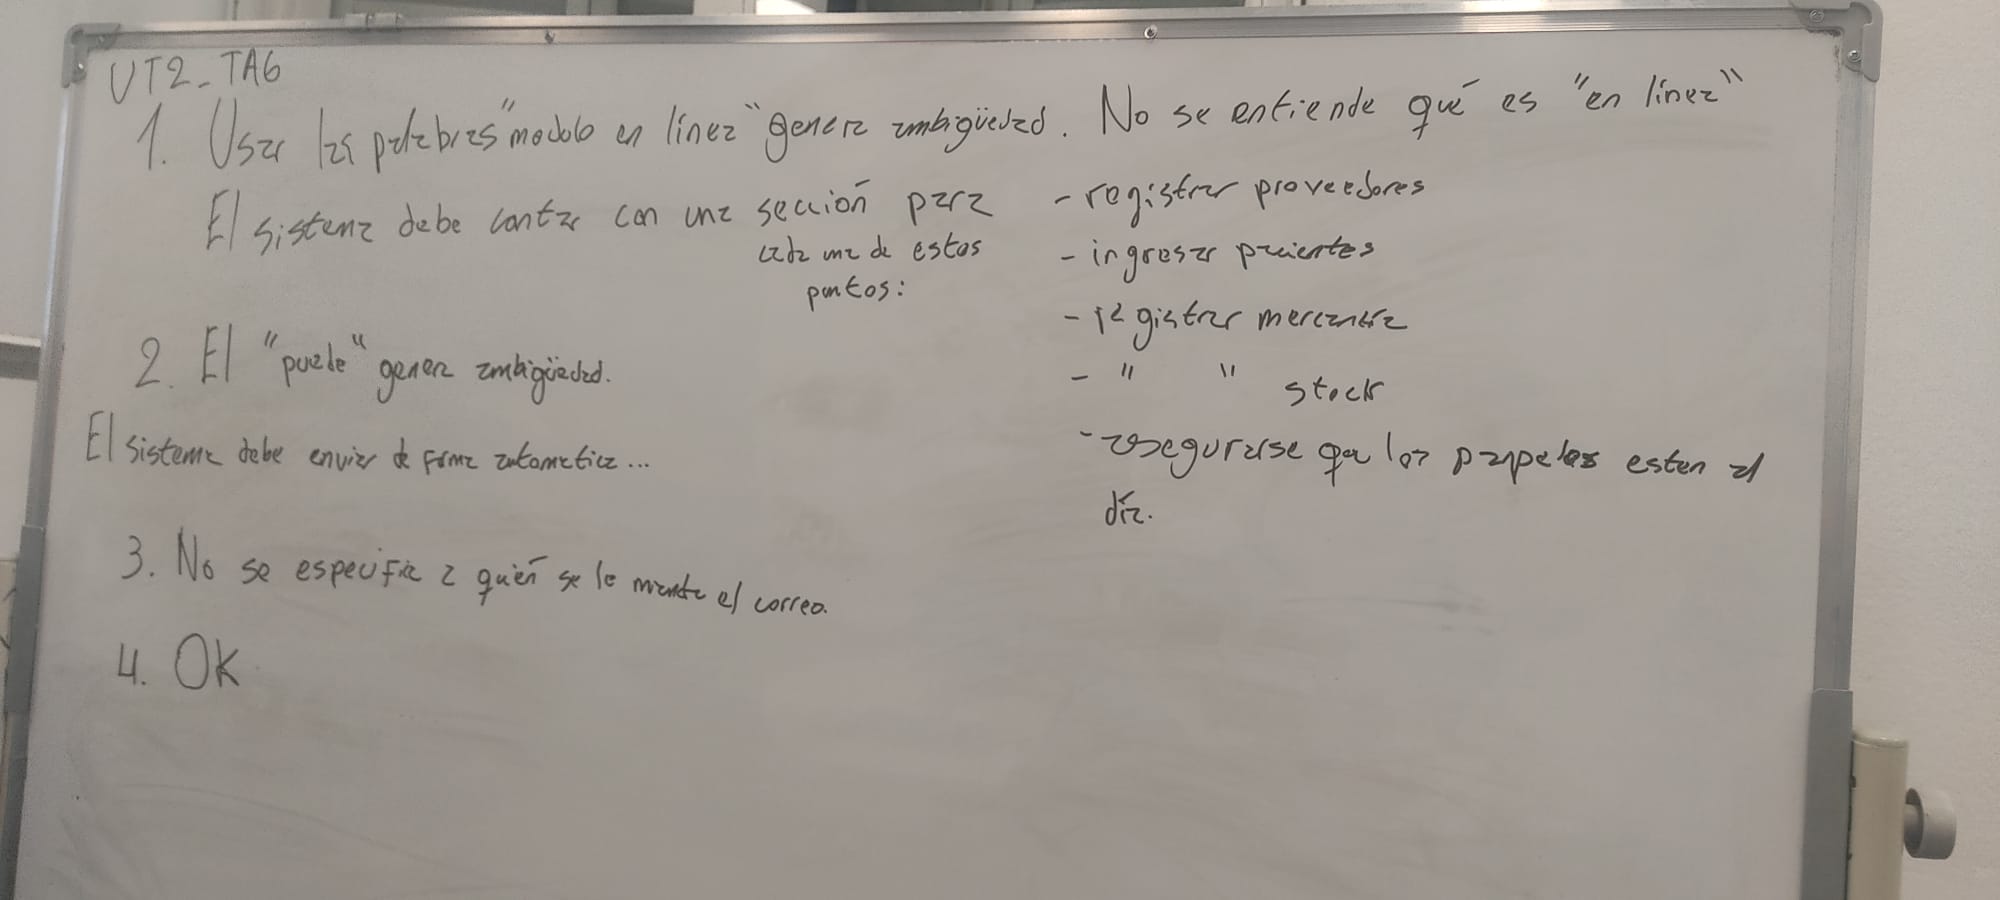 UT2_TA6
1. Usar las palabras "modulo en línea" genera ambigüedad. No se entiende qué es "en línea"
El sistema debe contar con una sección para
cada una de estos
puntos:
- registrar proveedores
- ingresar pacientes
- registrar mercancía
- " " stock
- asegurarse que los papeles esten al
día.
2. El "puede" genera ambigüedad.
El sistema debe enviar de forma automatica...
3. No se especifica a quién se le manda el correo.
4. Ok